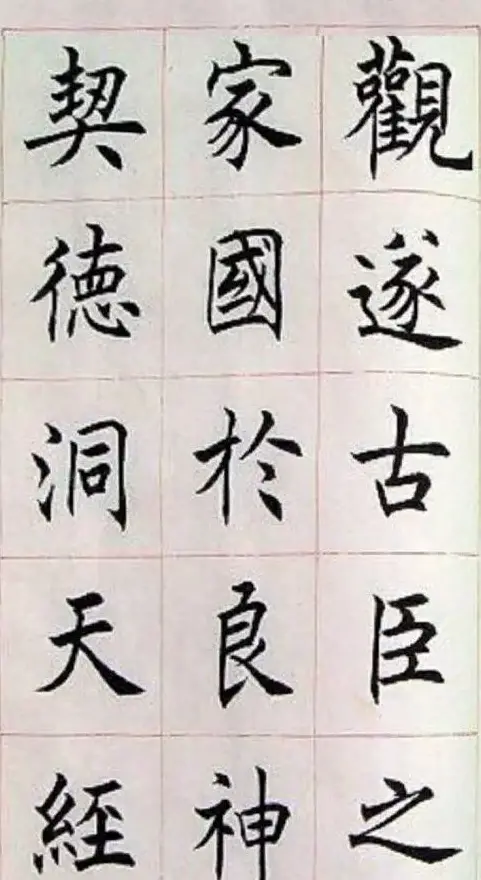 觀遂古臣之
家國於良神
契德洞天經